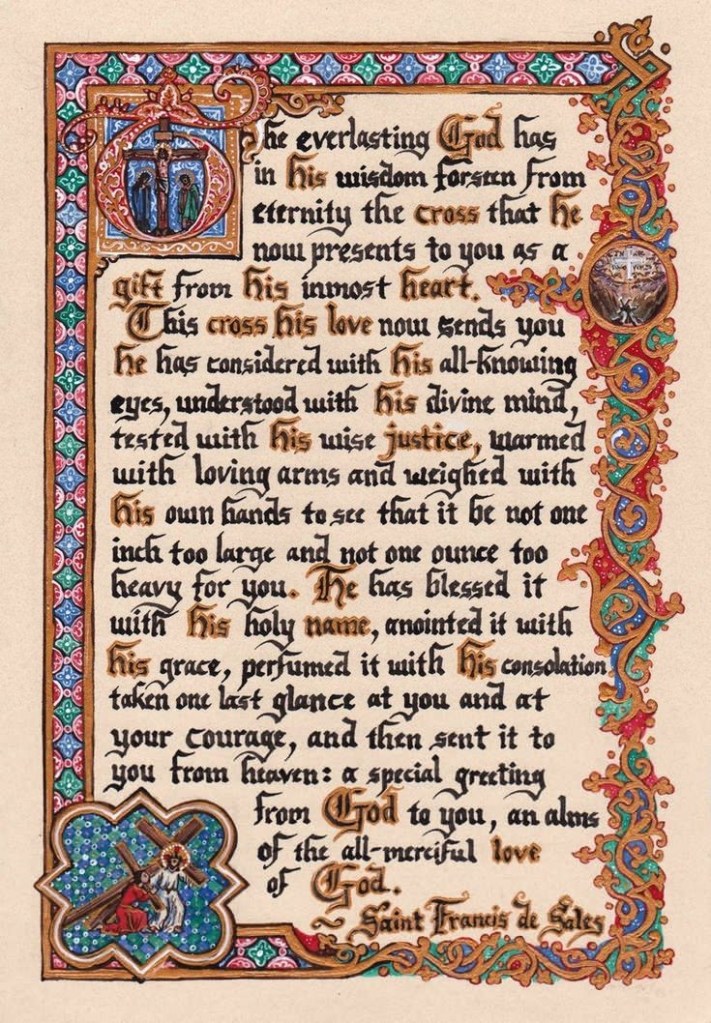 The everlasting God has
in His wisdom forseen from
eternity the cross that He
now presents to you as a
gift from His inmost heart.
This cross His love now sends you
He has considered with His all-knowing
eyes, understood with His divine mind,
tested with His wise justice, warmed
with loving arms and weighed with
His own hands to see that it be not one
inch too large and not one ounce too
heavy for you. He has blessed it
with His holy name, anointed it with
His grace, perfumed it with His consolation
taken one last glance at you and at
your courage, and then sent it to
you from heaven: a special greeting
from God to you, an alms
of the all-merciful love
of God.
~ Saint Francis de Sales